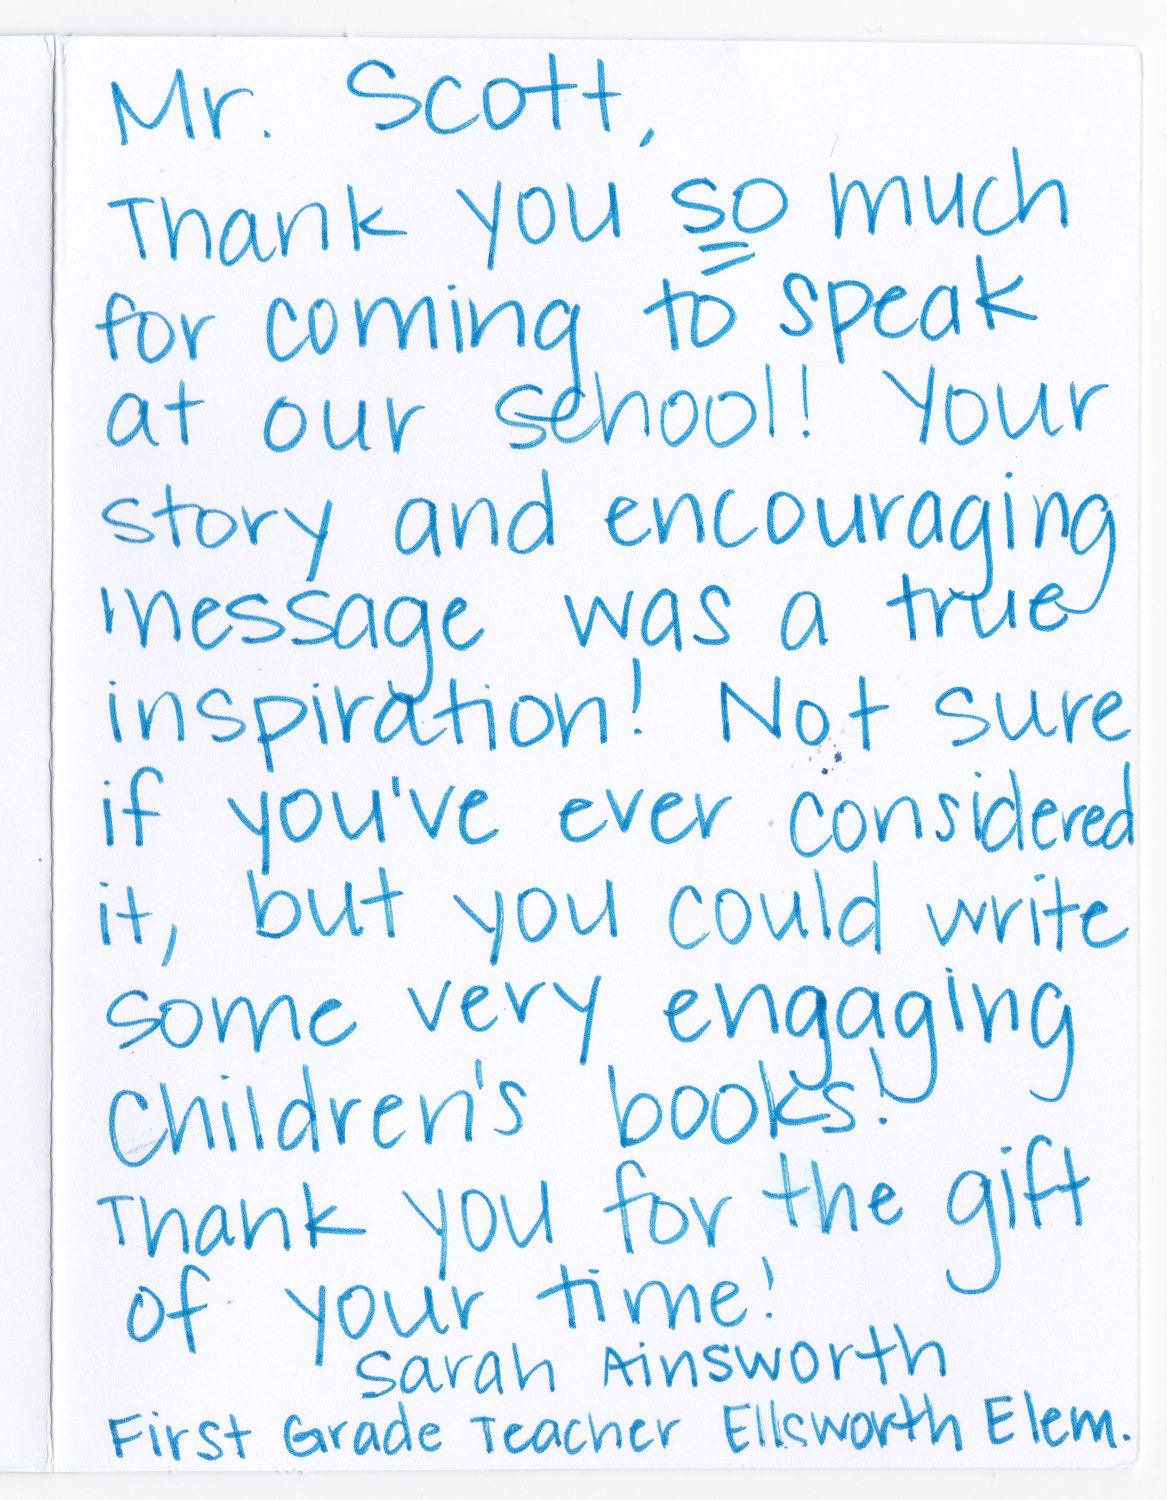 Mr. Scott,
Thank you so much
for coming to speak
at our school! Your
story and encouraging
message was a true
inspiration! Not sure
if you've ever considered
it, but you could write
some very engaging
Children's books!
Thank you for the gift
of your time!
Sarah Ainsworth
First Grade Teacher Ellsworth Elem.